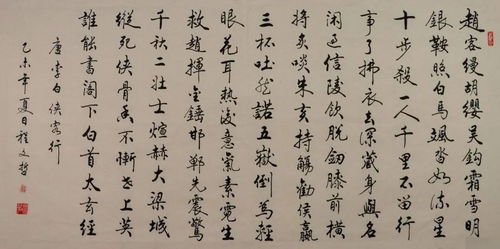 趙客縵胡纓吳鈎霜雪明
銀鞍照白馬颯沓如流星
十步殺一人千里不留行
事了拂衣去深藏身與名
閑過信陵飲脫劍膝前橫
將炙啖朱亥持觴勸侯嬴
三杯吐然諾五嶽倒為輕
眼花耳熱後意氣素霓生
救趙揮金錘邯鄲先震驚
千秋二壯士煊赫大梁城
縱死俠骨香不慚世上英
誰能書閣下白首太玄經
唐李白俠客行
乙未年夏日程文哲